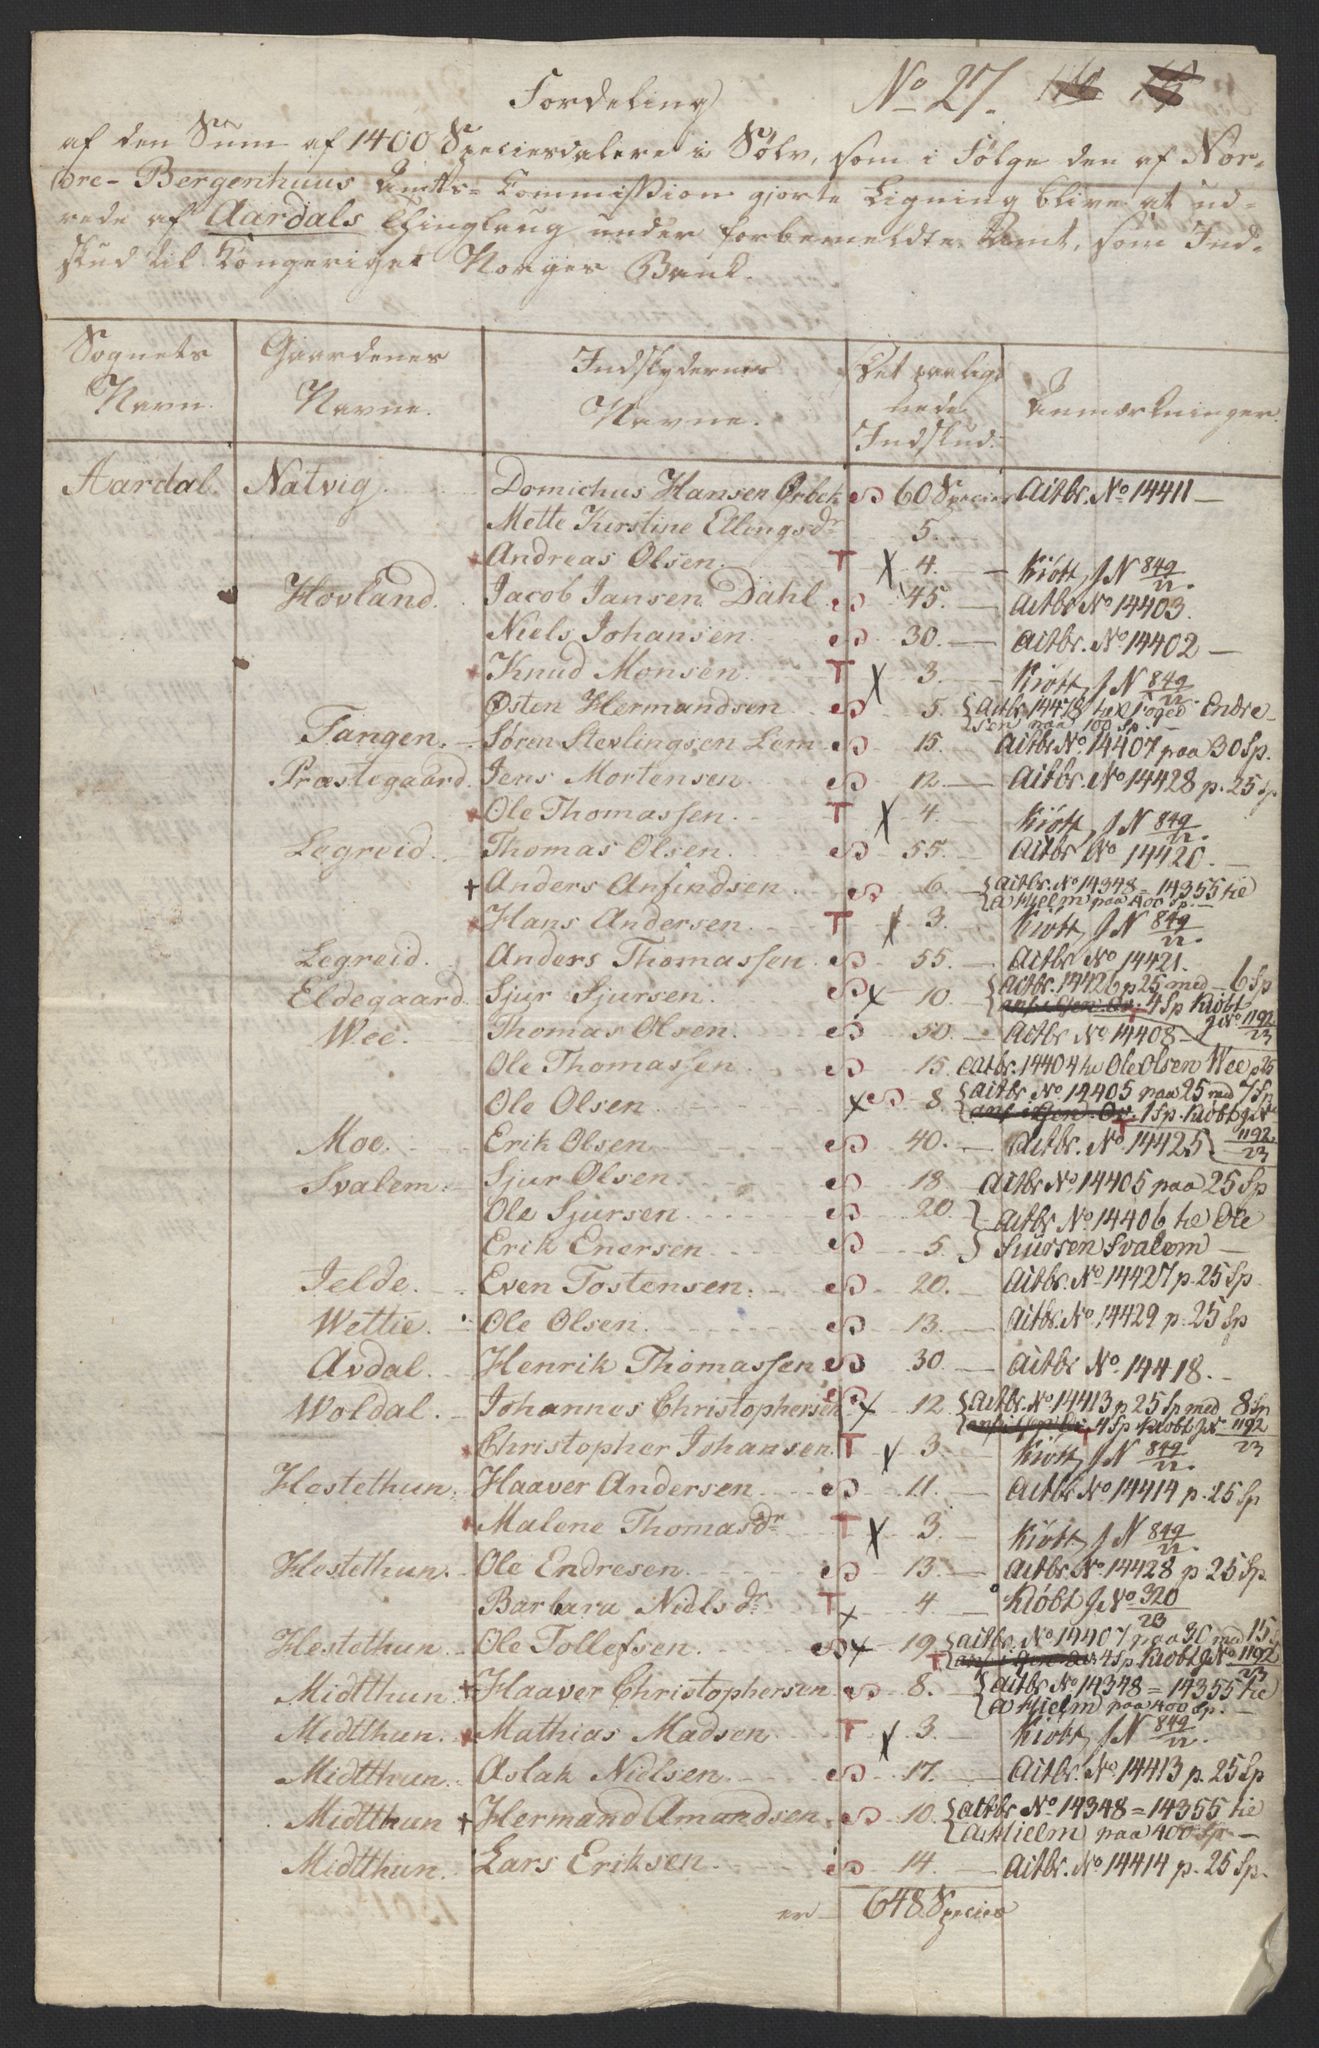 Fordeling No 27.
af den Sum af 1400 Speciesdalere i Sølv, som i Følge den af Nor-
dre-Bergenhuus Amts-Commission gjorte Ligning blive at ud-
rede af Aardals Thinglaug under forbemeldte Amt, som Ind-
skud til Kongeriget Norges Bank.
Sognets Navn. Gaardenes Navne. Indskydernes Navne. Det paalig- nede Indskud. Anmærkninger.
Aardal. Natvig. Domichus Hansen Ørbek 60 Species Actbr. No 14411 —
Mette Kirstine Ellingsdr 5.
Andreas Olsen. T X 4. — Kiøtt, J N 849/22.
Hovland. Jacob Jansen Dahl 45. — Actbr No 14403.
Niels Johansen 30. — Actbr. No 14402 —
Knud Monsen T X 3. — Kiøtt, J N 849/22
Østen Hermandsen 5. { Actbr 14478 til Foged Endre-
sen paa 100 Sp. —
Tangen. Søren Stevlingsen Lem 15. Actbr No 14407 paa 30 Sp.
Præstegaard. Jens Mortensen 12. — Actbr. No 14428 p. 25 Sp
Ole Thomassen. T X 4. — Kiøtt, J N 849/22.
Legreid. Thomas Olsen. 55. — Actbr No 14420. —
† Anders Anfindsen 6. { Actbr. No 14348 = 14355 til
a Hielm paa 400 Sp. —
Hans Andersen T X 3. Kiøtt, J N 849/22.
Legreid. Anders Thomassen 55. — Actbr No 14421.
Eldegaard. Sjur Sjursen. x 10. { Actbr. 14426 p 25 med 6 Sp
4 Sp Kiøbt J No 1192/23
Wee. Thomas Olsen. 50. — Actbr No 14408 —
Ole Thomassen 15. Actbr. 14404 til Ole Olsen Wee p 25
Ole Olsen x 8. { Actbr No 14405 paa 25 med 7 Sp
1 Sp. Kiøbt J No 1192/23
Moe. Erik Olsen 40. — Actbr. No 14425
Svalem. Sjur Olsen. 18 Actbr No 14405 paa 25 Sp
Ole Sjursen 20. } Actbr No 14406 til Ole
Erik Enersen 5. } Siursen Svalem —
Jelde. Even Tostensen. 20. Actbr. No 14427 p. 25 Sp
Wettie. Ole Olsen. 13. — Actbr. No 14429 p. 25 Sp
Avdal. Henrik Thomassen 30. — Actbr No 14418. —
Woldal. Johannes Christophersen x 12 { Actbr. No 14413 p 25 Sp med 8 Sp
4 Sp Kiøbt J N 1192/23
Christopher Johansen. T X 3. — Kiøtt, J N 849/22.
Hestethun. Haaver Andersen 11. — Actbr No 14414 p. 25 Sp
Malene Thomasdr T X 3. — Kiøtt, J N 849/22.
Hestethun. Ole Endresen 13. — Actbr. No 14428 p. 25 Sp
Barbara Nielsdr T x 4 — Kiøbt J No 320/23
Hestethun. Ole Tollefsen. x 19 { Actbr. No 14407 paa 30 med 15 S
4 Sp. Kiøbt J No 1192/23
Midtthun. † Haaver Christophersen 8. { Actbr No 14348 = 14355 til
a Hielm paa 400 Sp. —
Midtthun. Mathias Madsen T X 3. — Kiøtt, J N 849/22.
Midtthun. Aslak Nielsen 17. — Actbr. No 14413 p. 25 Sp
Midtthun † Hermand Amundsen. 10. { Actbr No 14348 = 14355 til
a Hielm paa 400 Sp —
Midtthun. Lars Eriksen 14. — Actbr. No 14414 p. 25 Sp.
er — 648 Species